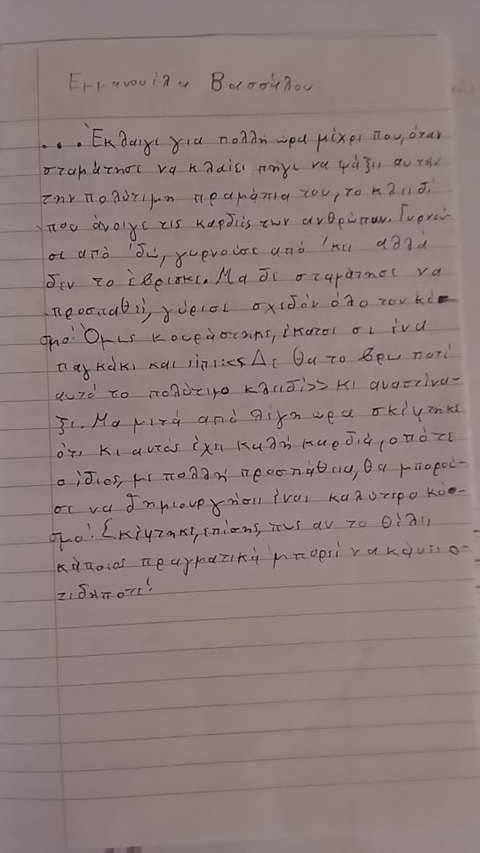 Εμμανουέλα Βασσάλου
... Έκλαιγε για πολλή ώρα μέχρι που, όταν
σταμάτησε να κλαίει πήγε να ψάξει αυτήν
την πολύτιμη πραμάτια του, το κλειδί
που άνοιγε τις καρδιές των ανθρώπων. Γυρνού-
σε από 'δω, γυρνούσε από 'κει αλλά
δεν το έβρισκε. Μα δε σταμάτησε να
προσπαθεί, γύρισε σχεδόν όλο τον κό-
σμο! Όμως κουράστηκε, έκατσε σε ένα
παγκάκι και είπε:<<Δε θα το βρω ποτέ
αυτό το πολύτιμο κλειδί>> κι αναστένα-
ξε. Μα μετά από λίγη ώρα σκέφτηκε
ότι κι αυτός έχει καλή καρδιά, οπότε
ο ίδιος, με πολλή προσπάθεια, θα μπορού-
σε να δημιουργήσει έναι καλύτερο κόσ-
σμο! Σκέφτηκε, επίσης, πως αν το θέλει
κάποιος πραγματικά μπορεί να κάνει ο-
τιδήποτε!